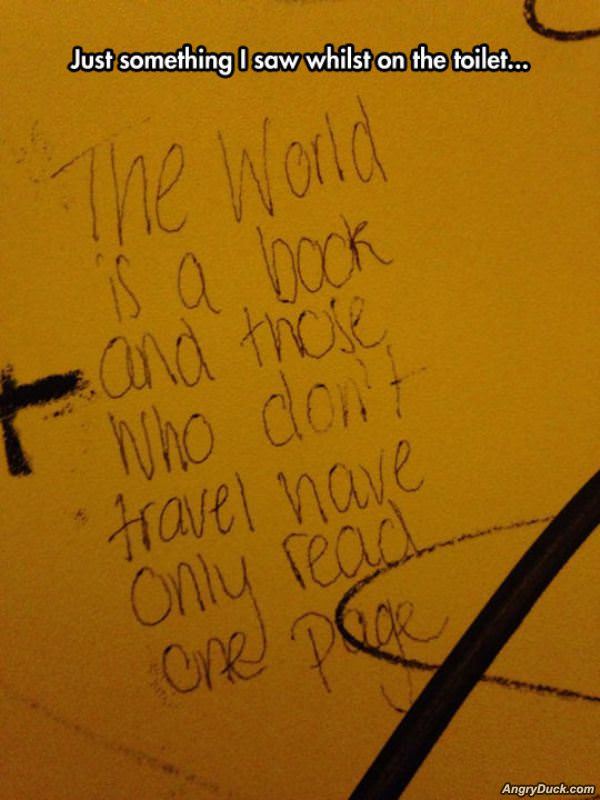 Just something I saw whilst on the toilet...
The World
is a book
and those
who don't
travel have
only read
one page
AngryDuck.com